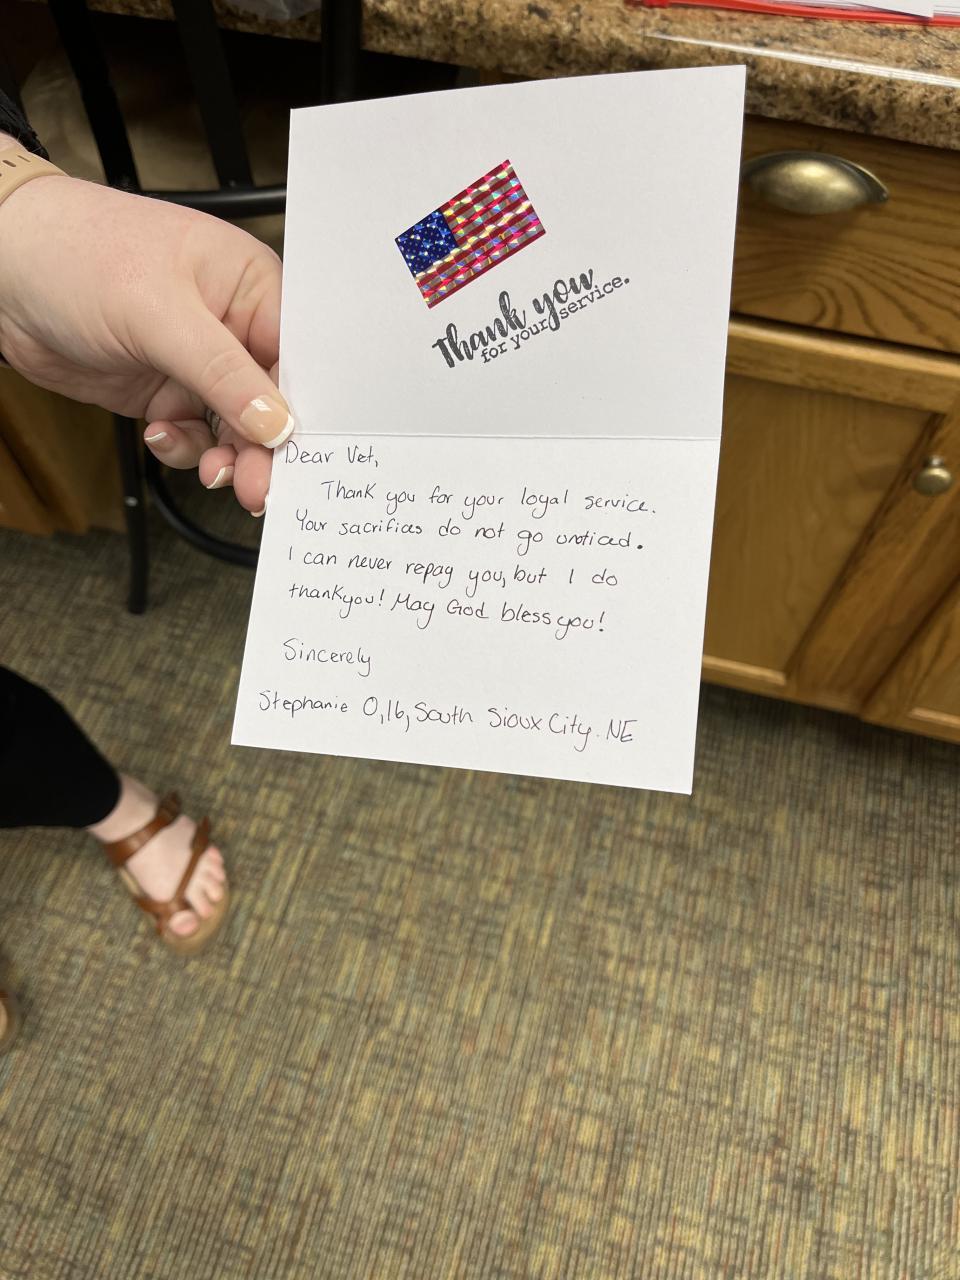 Thank you
for your service.
Dear Vet,
Thank you for your loyal service.
Your sacrifices do not go unoticed.
I can never repay you, but I do
thankyou! May God bless you!
Sincerely
Stephanie O, 16, South Sioux City. NE